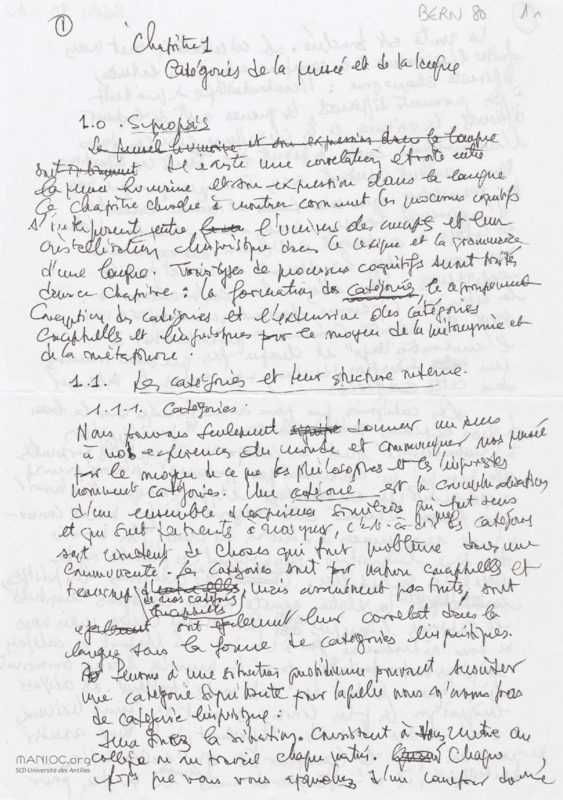 ① BERN 80 1
Chapitre 1
Catégories de la pensée et de la langue
1.0. Synopsis
La pensée humaine et son expression dans la langue
sont Il existe une corrélation étroite entre
la pensée humaine et son expression dans la langue
Ce chapitre cherche à montrer comment les processus cognitifs
s'interposent entre l'univers des concepts et leur
cristallisation linguistique dans le lexique et la grammaire
d'une langue. Trois types de processus cognitifs seront traités
dans ce chapitre : la formation des catégories, le regroupement
conceptuel des catégories et l'extension des catégories
conceptuelles et linguistiques par le moyen de la métonymie et
de la métaphore.
1.1. Les catégories et leur structure interne.
1.1.1. Catégories.
Nous pouvons seulement donner un sens
à notre expérience du monde et communiquer nos pensées
par le moyen de ce que les philosophes et les linguistes
nomment catégories. Une catégorie est la conceptualisation
d'une ensemble d'expériences similaires qui font sens
et qui sont pertinents à nos yeux, c'est-à-dire que les catégories
sont de choses qui font problème dans une
communauté. Les catégories sont par nature conceptuelles et
beaucoup mais assurément pas toutes, sont
de nos catégories
conceptuelles
également ont également leur corrélat dans la
langue sous la forme de catégories linguistiques.
Pensons à une situation quotidienne pouvant susciter
une catégorie signifiante pour laquelle nous n'avons pas
de catégorie linguistique :
la situation. consistant à
collège ni au travail chaque matin. Chaque
fois que vous vous approchez d'un comptoir
MANIOC.org
SCD Université des Antilles